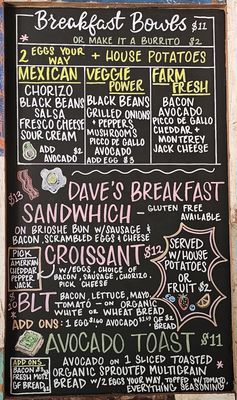 Breakfast Bowls $11
OR MAKE IT A BURRITO $2
2 EGGS YOUR WAY + HOUSE POTATOES
MEXICAN
CHORIZO
BLACK BEANS
SALSA
FRESCO CHEESE
SOUR CREAM
ADD $2
AVOCADO
VEGGIE
POWER
BLACK BEANS
GRILLED ONIONS
+ PEPPERS
MUSHROOMS
PICO DE GALLO
AVOCADO
ADD EGG $3
FARM
FRESH
BACON
AVOCADO
PICO DE GALLO
CHEDDAR +
MONTEREY
JACK CHEESE
$13 DAVE'S BREAKFAST
SANDWHICH - GLUTEN FREE
AVAILABLE
ON BRIOSHE BUN W/SAUSAGE &
BACON, SCRAMBLED EGGS & CHEESE
PICK
AMERICAN
CHEDDAR
PEPPER
JACK
CROISSANT $12
W/EGGS, CHOICE OF
BACON, SAUSAGE, CHORIZO.
PICK CHEESE
SERVED
W/HOUSE
POTATOES
OR
FRUIT $2
BLT BACON, LETTUCE, MAYO,
TOMATO - ON ORGANIC
WHITE OR WHEAT BREAD
ADD ONS: 1 EGG AVOCADO GF $2
BREAD
AVOCADO TOAST $11
ADD ONS
BACON
FRESH
GF BREAD
AVOCADO ON 1 SLICED TOASTED
ORGANIC SPROUTED MULTIGRAIN
BREAD W/2 EGGS YOUR WAY, TOPPED W/TOMATO,
EVERYTHING SEASONING